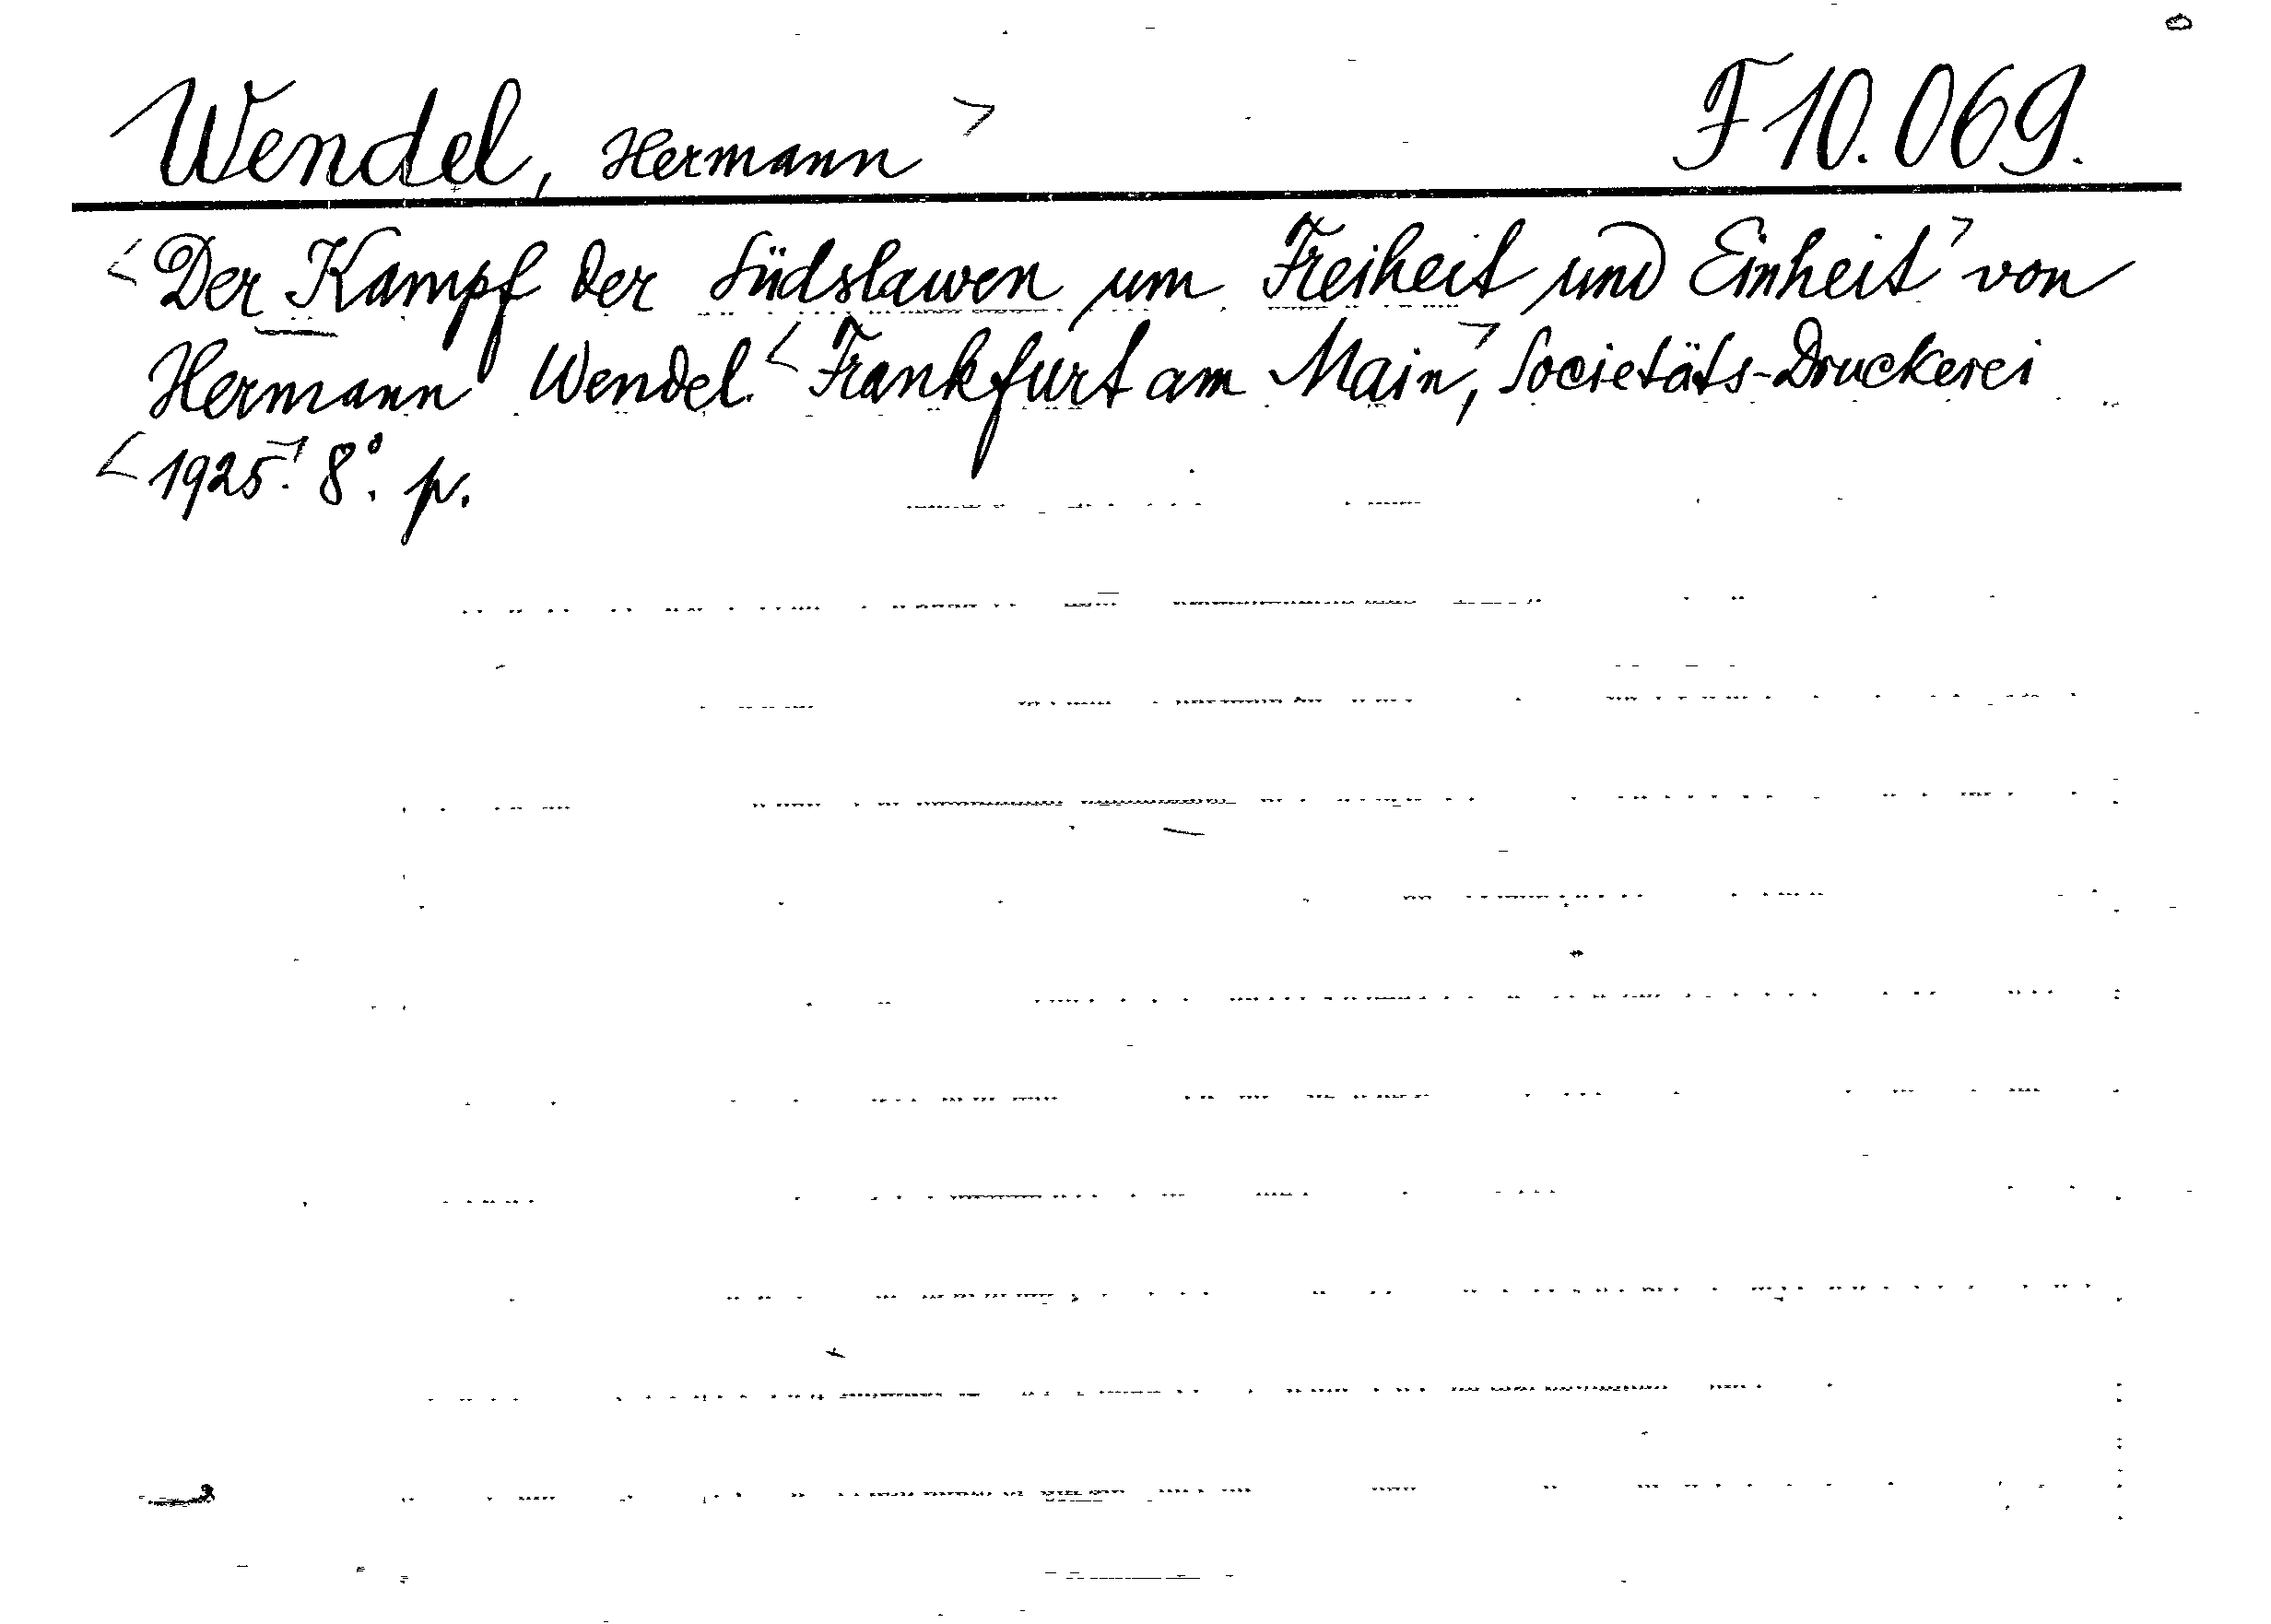 Wendel, Hermann F 10.069.
Der Kampf der Südslawen um Freiheit und Einheit von
Hermann Wendel. Frankfurt am Main, Societäts-Druckerei
1925. 8°. p.